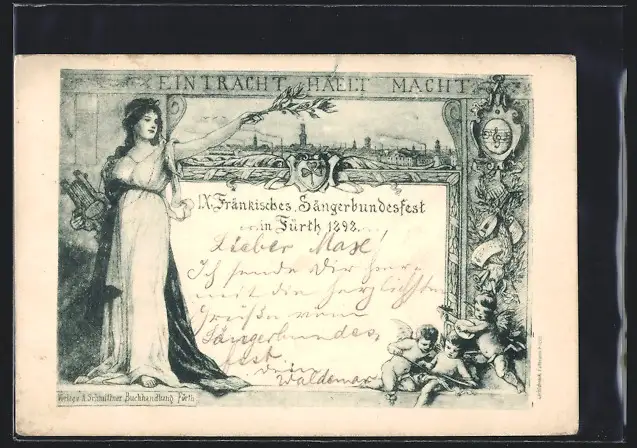 EINTRACHT HAELT MACHT
IX. Fränkisches Sängerbundesfest
in Fürth 1898.
Lieber Max!
Ich sende Dir
mit die herzlichsten
Grüße vom
Sängerbundes,
fest
dein
Waldemar
Verlag v. A. Schmittner, Buchhandlung, Fürth